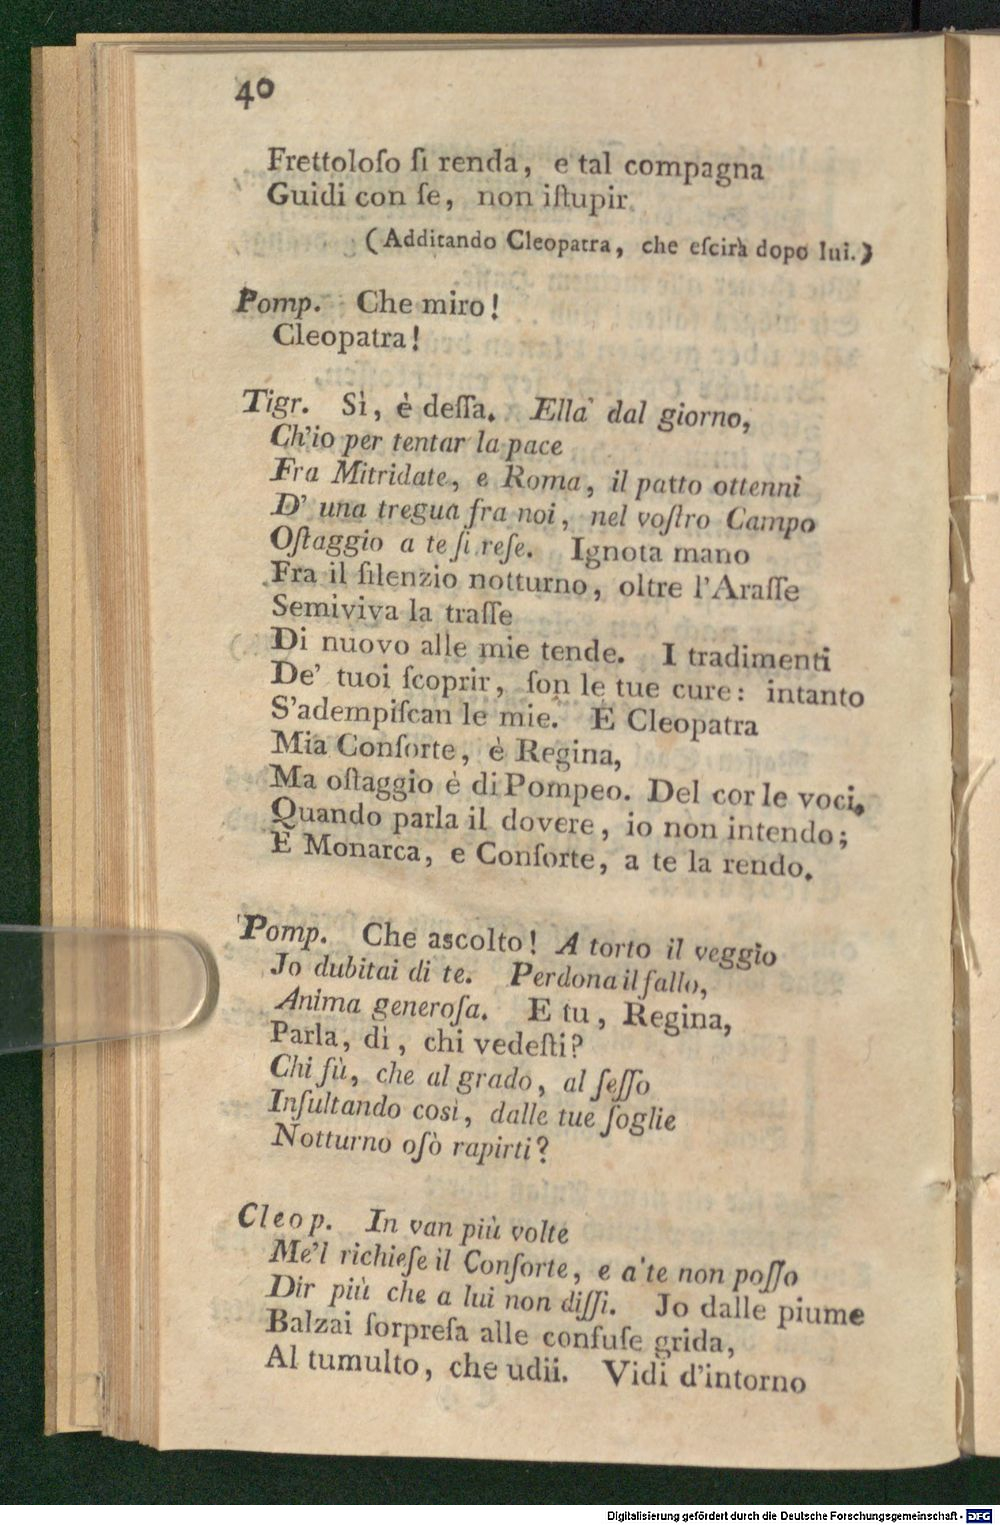 40
Frettoloſo ſi renda, e tal compagna
Guidi con ſe, non iſtupir
(Additando Cleopatra, che eſcirà dopo lui.)
Pomp. Che miro!
Cleopatra!
Tigr. Sì, è deſſa. Ella dal giorno,
Ch'io per tentar la pace
Fra Mitridate, e Roma, il patto ottenni
D' una tregua fra noi, nel voſtro Campo
Oſtaggio a te ſi reſe. Ignota mano
Fra il ſilenzio notturno, oltre l'Araſſe
Semiviva la traſſe
Di nuovo alle mie tende. I tradimenti
De' tuoi ſcoprir, ſon le tue cure: intanto
S'adempiſcan le mie. E Cleopatra
Mia Conſorte, è Regina,
Ma oſtaggio è di Pompeo. Del cor le voci,
Quando parla il dovere, io non intendo;
E Monarca, e Conſorte, a te la rendo.
Pomp. Che ascolto! A torto il veggio
Jo dubitai di te. Perdona il fallo,
Anima generoſa. E tu, Regina,
Parla, dì, chi vedeſti?
Chi fù, che al grado, al ſeſſo
Inſultando così, dalle tue ſoglie
Notturno oſò rapirti?
Cleop. In van più volte
Me'l richieſe il Conſorte, e a te non poſſo
Dir più che a lui non diſſi. Jo dalle piume
Balzai ſorpreſa alle confuſe grida,
Al tumulto, che udii. Vidi d'intorno
Digitalisierung gefördert durch die Deutsche Forschungsgemeinschaft - DFG